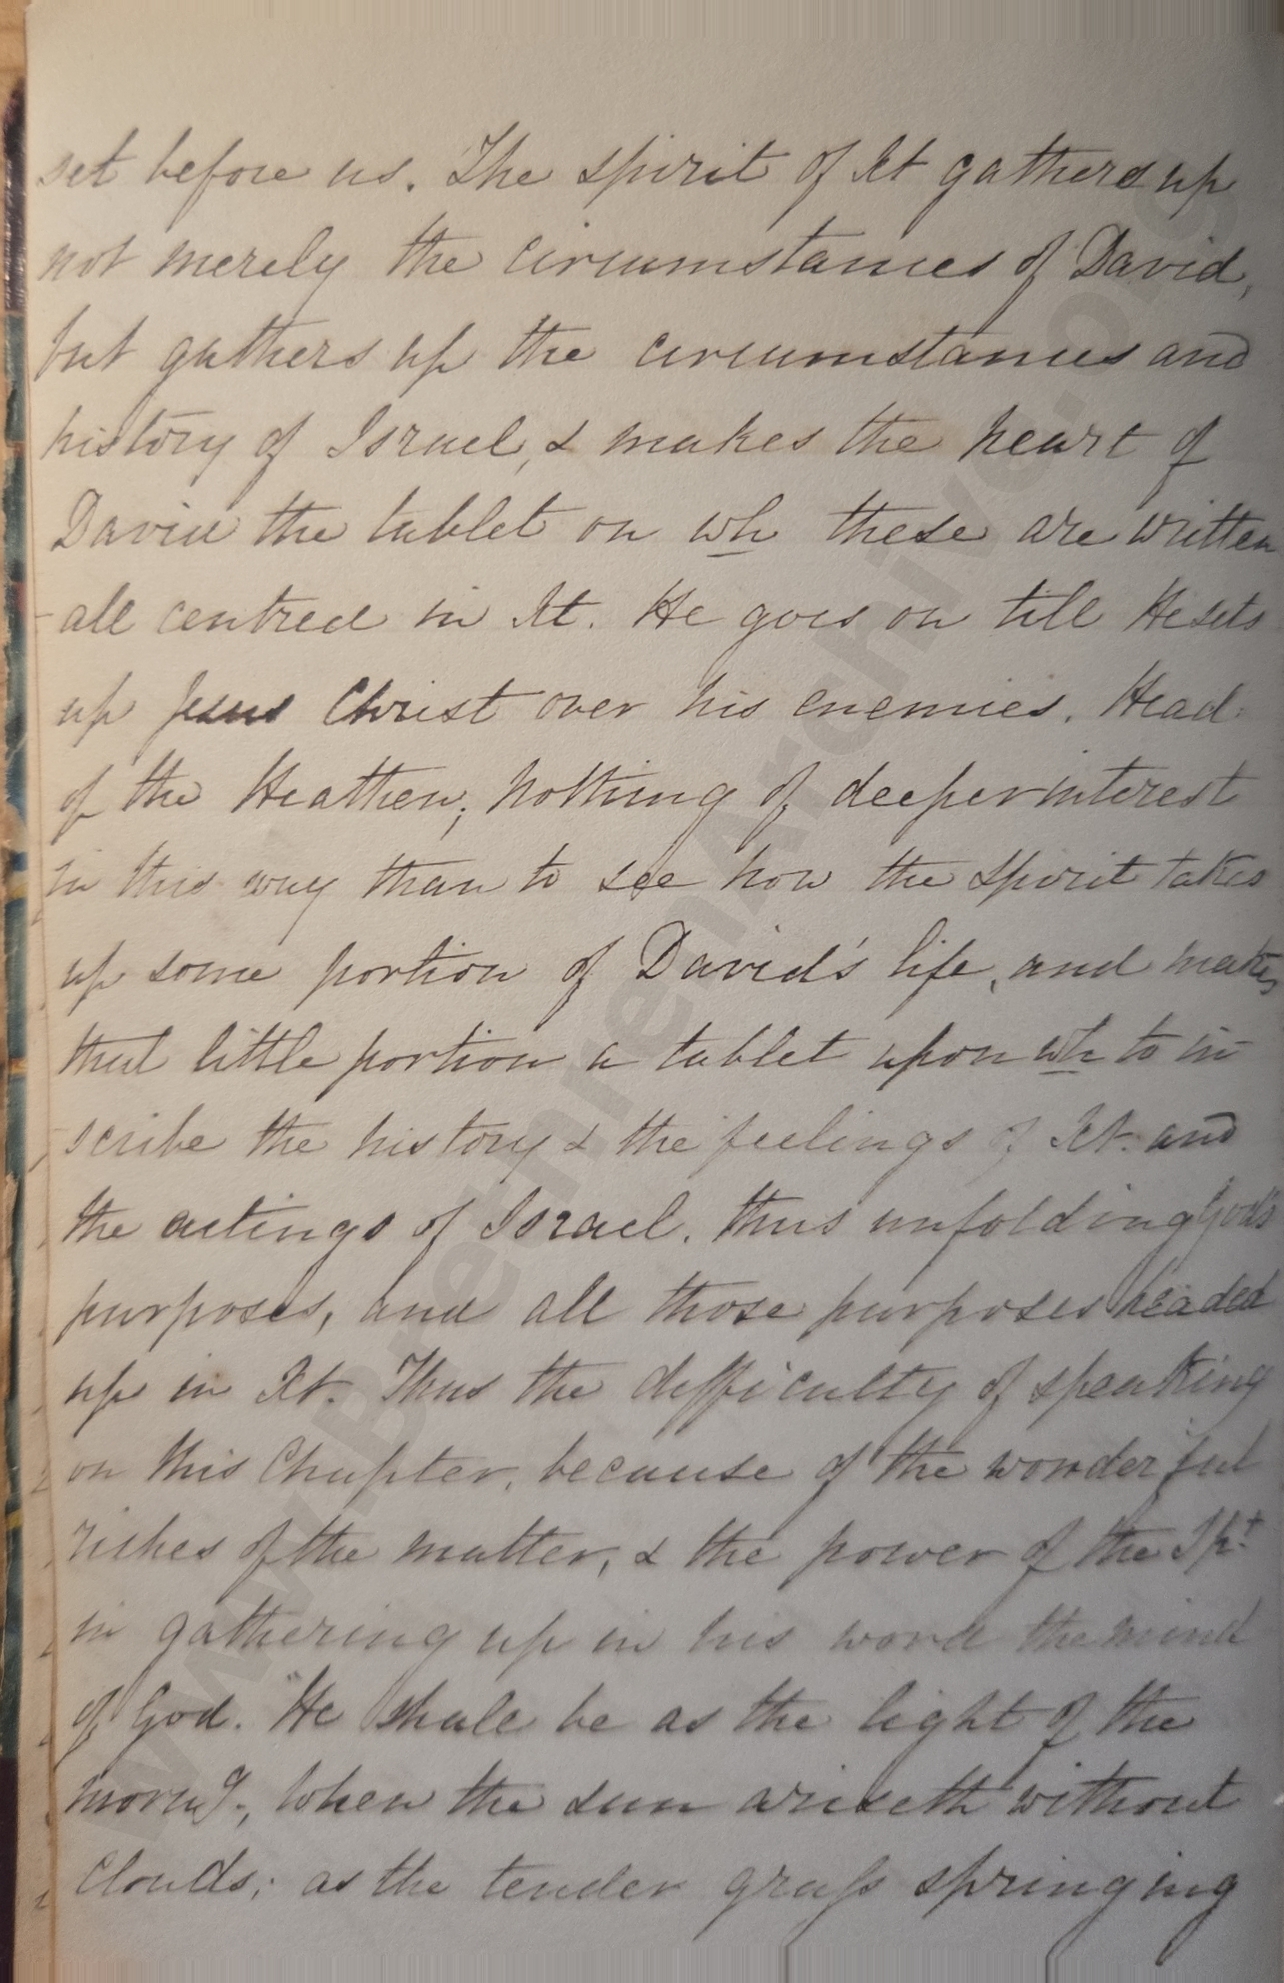 set before us. The spirit of Xt gathers up
not merely the circumstances of David,
but gathers up the circumstances and
history of Israel, & makes the heart of
David the tablet on wh these are written
all centred in Xt. He goes on till He sets
up Jesus Christ over his enemies. Head
of the Heathen; nothing of deeper interest
in this way than to see how the spirit takes
up some portion of David's life, and makes
that little portion a tablet upon wh to in-
scribe the history & the feelings of Xt. and
the actings of Israel. thus unfolding God's
purposes, and all those purposes headed
up in Xt. Thus the difficulty of speaking
on this Chapter, because of the wonderful
riches of the matter, & the power of the Spt.
in gathering up in his word the mind
of God. "He shall be as the light of the
morng., when the sun ariseth without
clouds; as the tender grass springing
www.BrethrenArchive.org